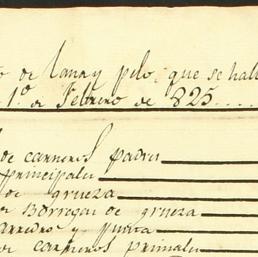 de lana y pelo, que se hall
1.º de Febrero de 825....
de carneros padres
principales
de grueza
de Borregas de grueza
de carneros primales